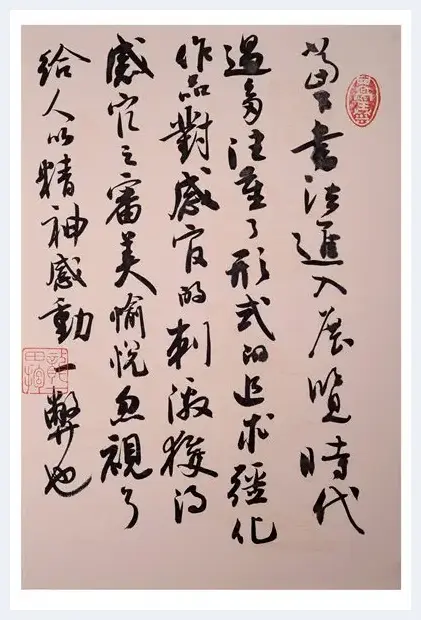 當書法進入展覽時代
過多注重了形式的追求彊化
作品對感官的刺激獲得
感官之審美愉悅忽視了
給人以精神感動一弊也